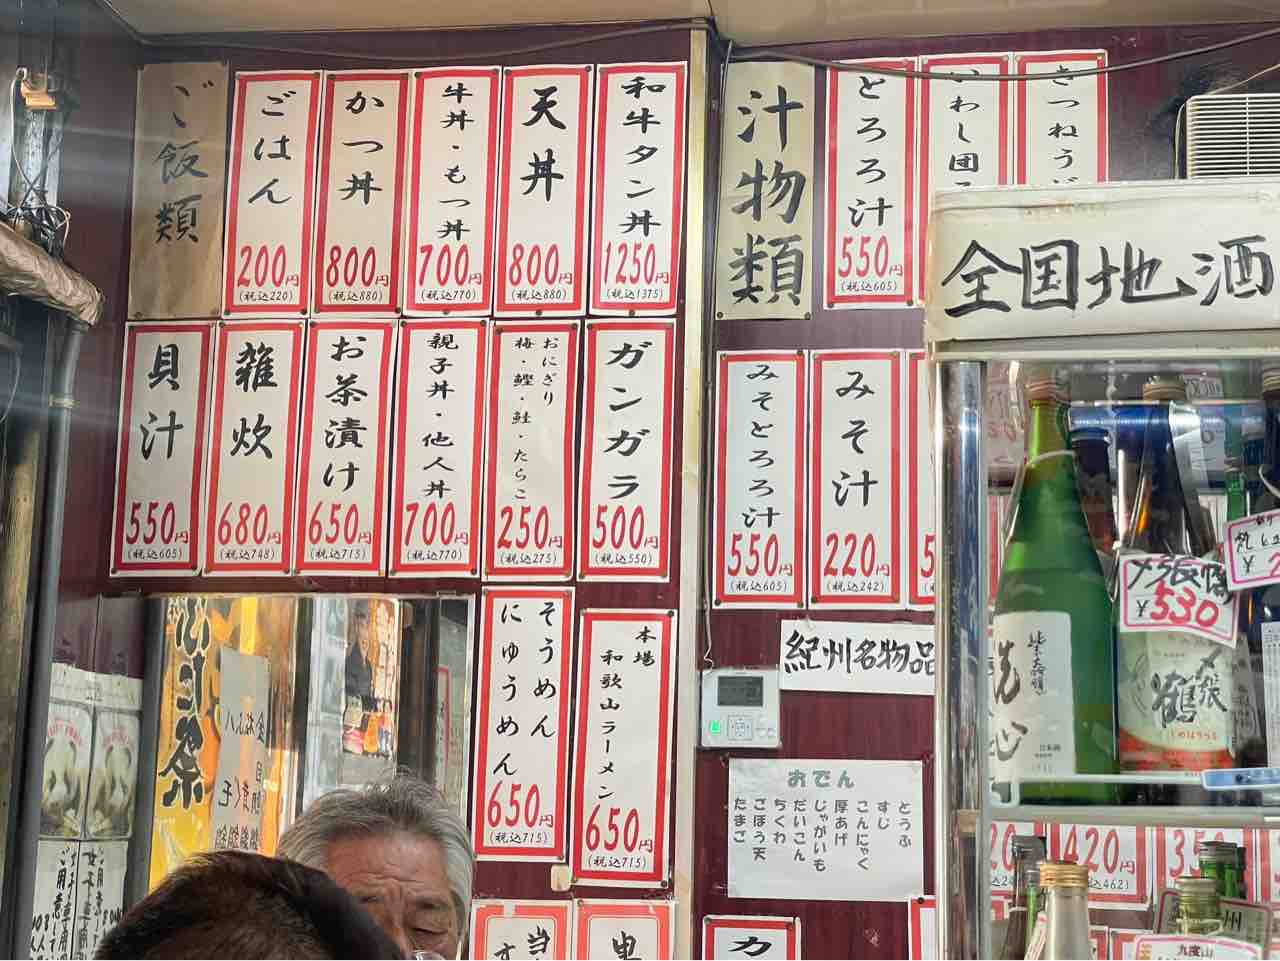 ご飯類
ごはん
200円
(税込220)
かつ丼
800円
(税込880)
牛丼・もつ丼
700円
(税込770)
天丼
800円
(税込880)
和牛タン丼
1250円
(税込1375)
汁物類
とろろ汁
550円
(税込605)
いわし団
きつねう
全国地酒
貝汁
550円
(税込605)
雑炊
680円
(税込748)
お茶漬け
650円
(税込715)
親子丼・他人丼
700円
(税込770)
おにぎり
梅・鰹・鮭・たらこ
250円
(税込275)
ガンガラ
500円
(税込550)
みそとろろ汁
550円
(税込605)
みそ汁
220円
(税込242)
そうめん
にゅうめん
650円
(税込715)
本場
和歌山ラーメン
650円
(税込715)
紀州名物品
おでん
とうふ
すじ
こんにゃく
厚あげ
じゃがいも
だいこん
ちくわ
ごぼう天
たまご
〆張鶴
¥530
〆張鶴
しめはりつる
420円
込462)
カ
九度山